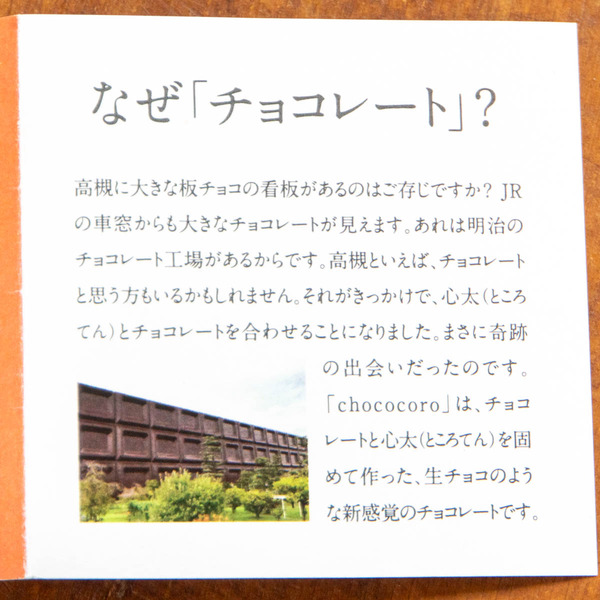 なぜ「チョコレート」?
高槻に大きな板チョコの看板があるのはご存じですか? JR
の車窓からも大きなチョコレートが見えます。あれは明治の
チョコレート工場があるからです。高槻といえば、チョコレート
と思う方もいるかもしれません。それがきっかけで、心太(ところ
てん)とチョコレートを合わせることになりました。まさに奇跡
の出会いだったのです。
「chococoro」は、チョコ
レートと心太(ところてん)を固
めて作った、生チョコのよう
な新感覚のチョコレートです。